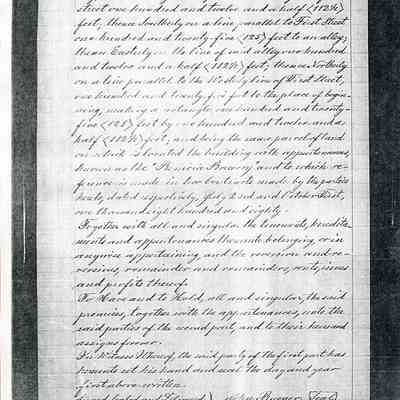 street one hundred and twelve and a half (112½)
feet, thence Southerly on a line, parallel to First Street
one hundred and twenty-five (125) feet to an alley;
thence Easterly on the line of said alley one hundred
and twelve and a half (112½) feet; thence Northerly
on a line parallel to the Westerly line of West Street,
one hundred and twenty five feet to the place of begin-
ning, making a rectangle one hundred and twenty-
five (125) feet by one hundred and twelve and a
half (112½) feet, and being the same parcel of land
on which is located the building with appurtenances,
known as the "Benicia Brewery" and to which re-
ference is made in two contracts made by the parties
hereto, dated respectively, July 22nd and October First,
one thousand eight hundred and eighty.
Together with all and singular the tenements, heredita-
ments and appurtenances thereunto belonging, or in
anywise appertaining, and the reversion and re-
versions, remainder and remainders, rents, issues
and profits thereof.
To Have and to Hold, all and singular, the said
premises, together with the appurtenances, unto the
said parties of the second part, and to their heirs and
assigns forever.
In Witness Whereof, the said party of the first part has
hereunto set his hand and seal the day and year
first above written.
Signed Sealed and Delivered ) Seal